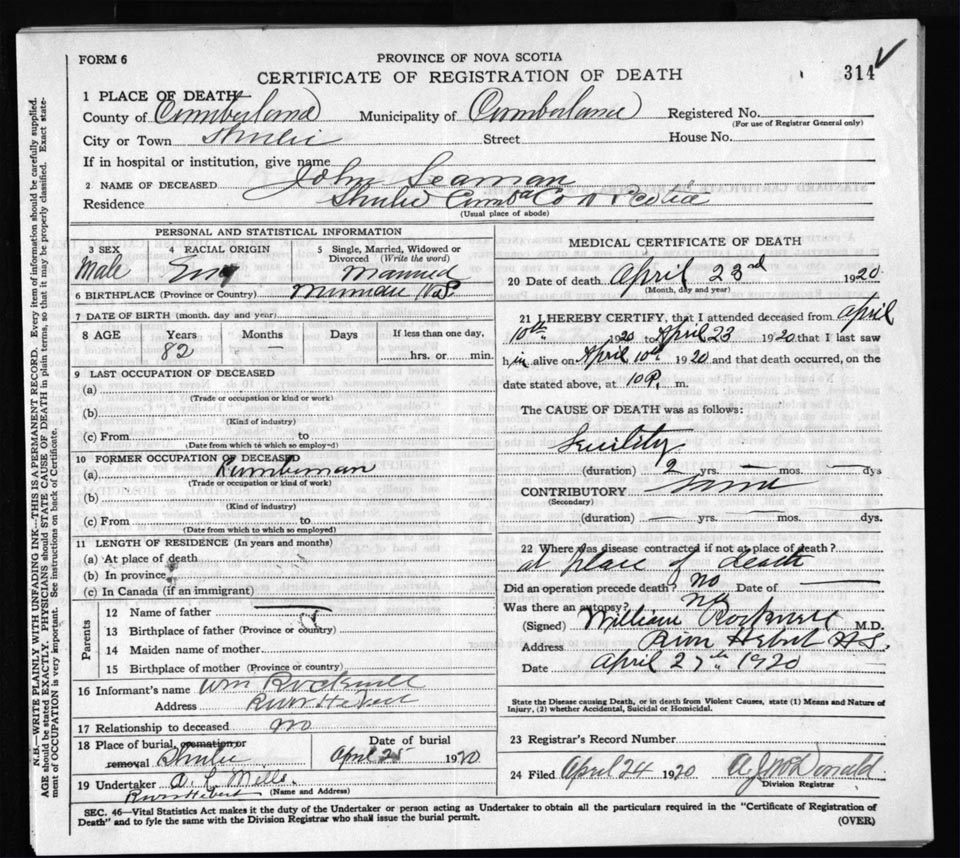 FORM 6
PROVINCE OF NOVA SCOTIA
CERTIFICATE OF REGISTRATION OF DEATH
314
1 PLACE OF DEATH—
County of Cumberland Municipality of Cumberland Registered No.
(For use of Registrar General only)
City or Town Shulie Street House No.
If in hospital or institution, give name
2 NAME OF DECEASED John Seaman
Residence Shulie Cumbd Co N Scotia
(Usual place of abode)
PERSONAL AND STATISTICAL INFORMATION
3 SEX 4 RACIAL ORIGIN 5 Single, Married, Widowed or Divorced (Write the word)
Male Eng Married
6 BIRTHPLACE (Province or Country) Minudie N.S.
7 DATE OF BIRTH (month, day and year)
8 AGE Years Months Days If less than one day,
82 — hrs. or min.
9 LAST OCCUPATION OF DECEASED
(a)
(Trade or occupation or kind or work)
(b)
(Kind of industry)
(c) From to
(Date from which to which so employed)
10 FORMER OCCUPATION OF DECEASED
(a) Lumberman
(Trade or occupation or kind of work)
(b)
(Kind of industry)
(c) From to
(Date from which to which so employed)
11 LENGTH OF RESIDENCE (In years and months)
(a) At place of death
(b) In province
(c) In Canada (if an immigrant)
Parents
12 Name of father
13 Birthplace of father (Province or country)
14 Maiden name of mother
15 Birthplace of mother (Province or country)
16 Informant's name Wm Rockwell
Address River Hebert
17 Relationship to deceased no
18 Place of burial, cremation or removal Shulie Date of burial April 25 1920
19 Undertaker D. L. Mills
River Hebert (Name and Address)
MEDICAL CERTIFICATE OF DEATH
20 Date of death April 23rd 1920
(Month, day and year)
21 I HEREBY CERTIFY, that I attended deceased from April
10th 1920 to April 23 1920 that I last saw
him alive on April 10th 1920 and that death occurred, on the
date stated above, at 10 P. m.
The CAUSE OF DEATH was as follows:
Senility
(duration) 2 yrs. — mos. — dys
CONTRIBUTORY Same
(Secondary)
(duration) — yrs. — mos. — dys.
22 Where was disease contracted if not at place of death?
at place of death
Did an operation precede death? no Date of
Was there an autopsy? no
(Signed) William Rockwell M.D.
Address River Hebert N.S.
Date April 27th 1920
State the Disease causing Death, or in death from Violent Causes, state (1) Means and Nature of
Injury, (2) whether Accidental, Suicidal or Homicidal.
23 Registrar's Record Number
24 Filed April 24 1920 A J McDonald
Division Registrar
SEC. 46—Vital Statistics Act makes it the duty of the Undertaker or person acting as Undertaker to obtain all the particulars required in the "Certificate of Registration of
Death" and to fyle the same with the Division Registrar who shall issue the burial permit.
(OVER)
N.B.—WRITE PLAINLY WITH UNFADING INK—THIS IS A PERMANENT RECORD. Every item of information should be carefully supplied.
AGE should be stated EXACTLY. PHYSICIANS should STATE CAUSE OF DEATH in plain terms, so that it may be properly classified. Exact state-
ment of OCCUPATION is very important. See instructions on back of Certificate.